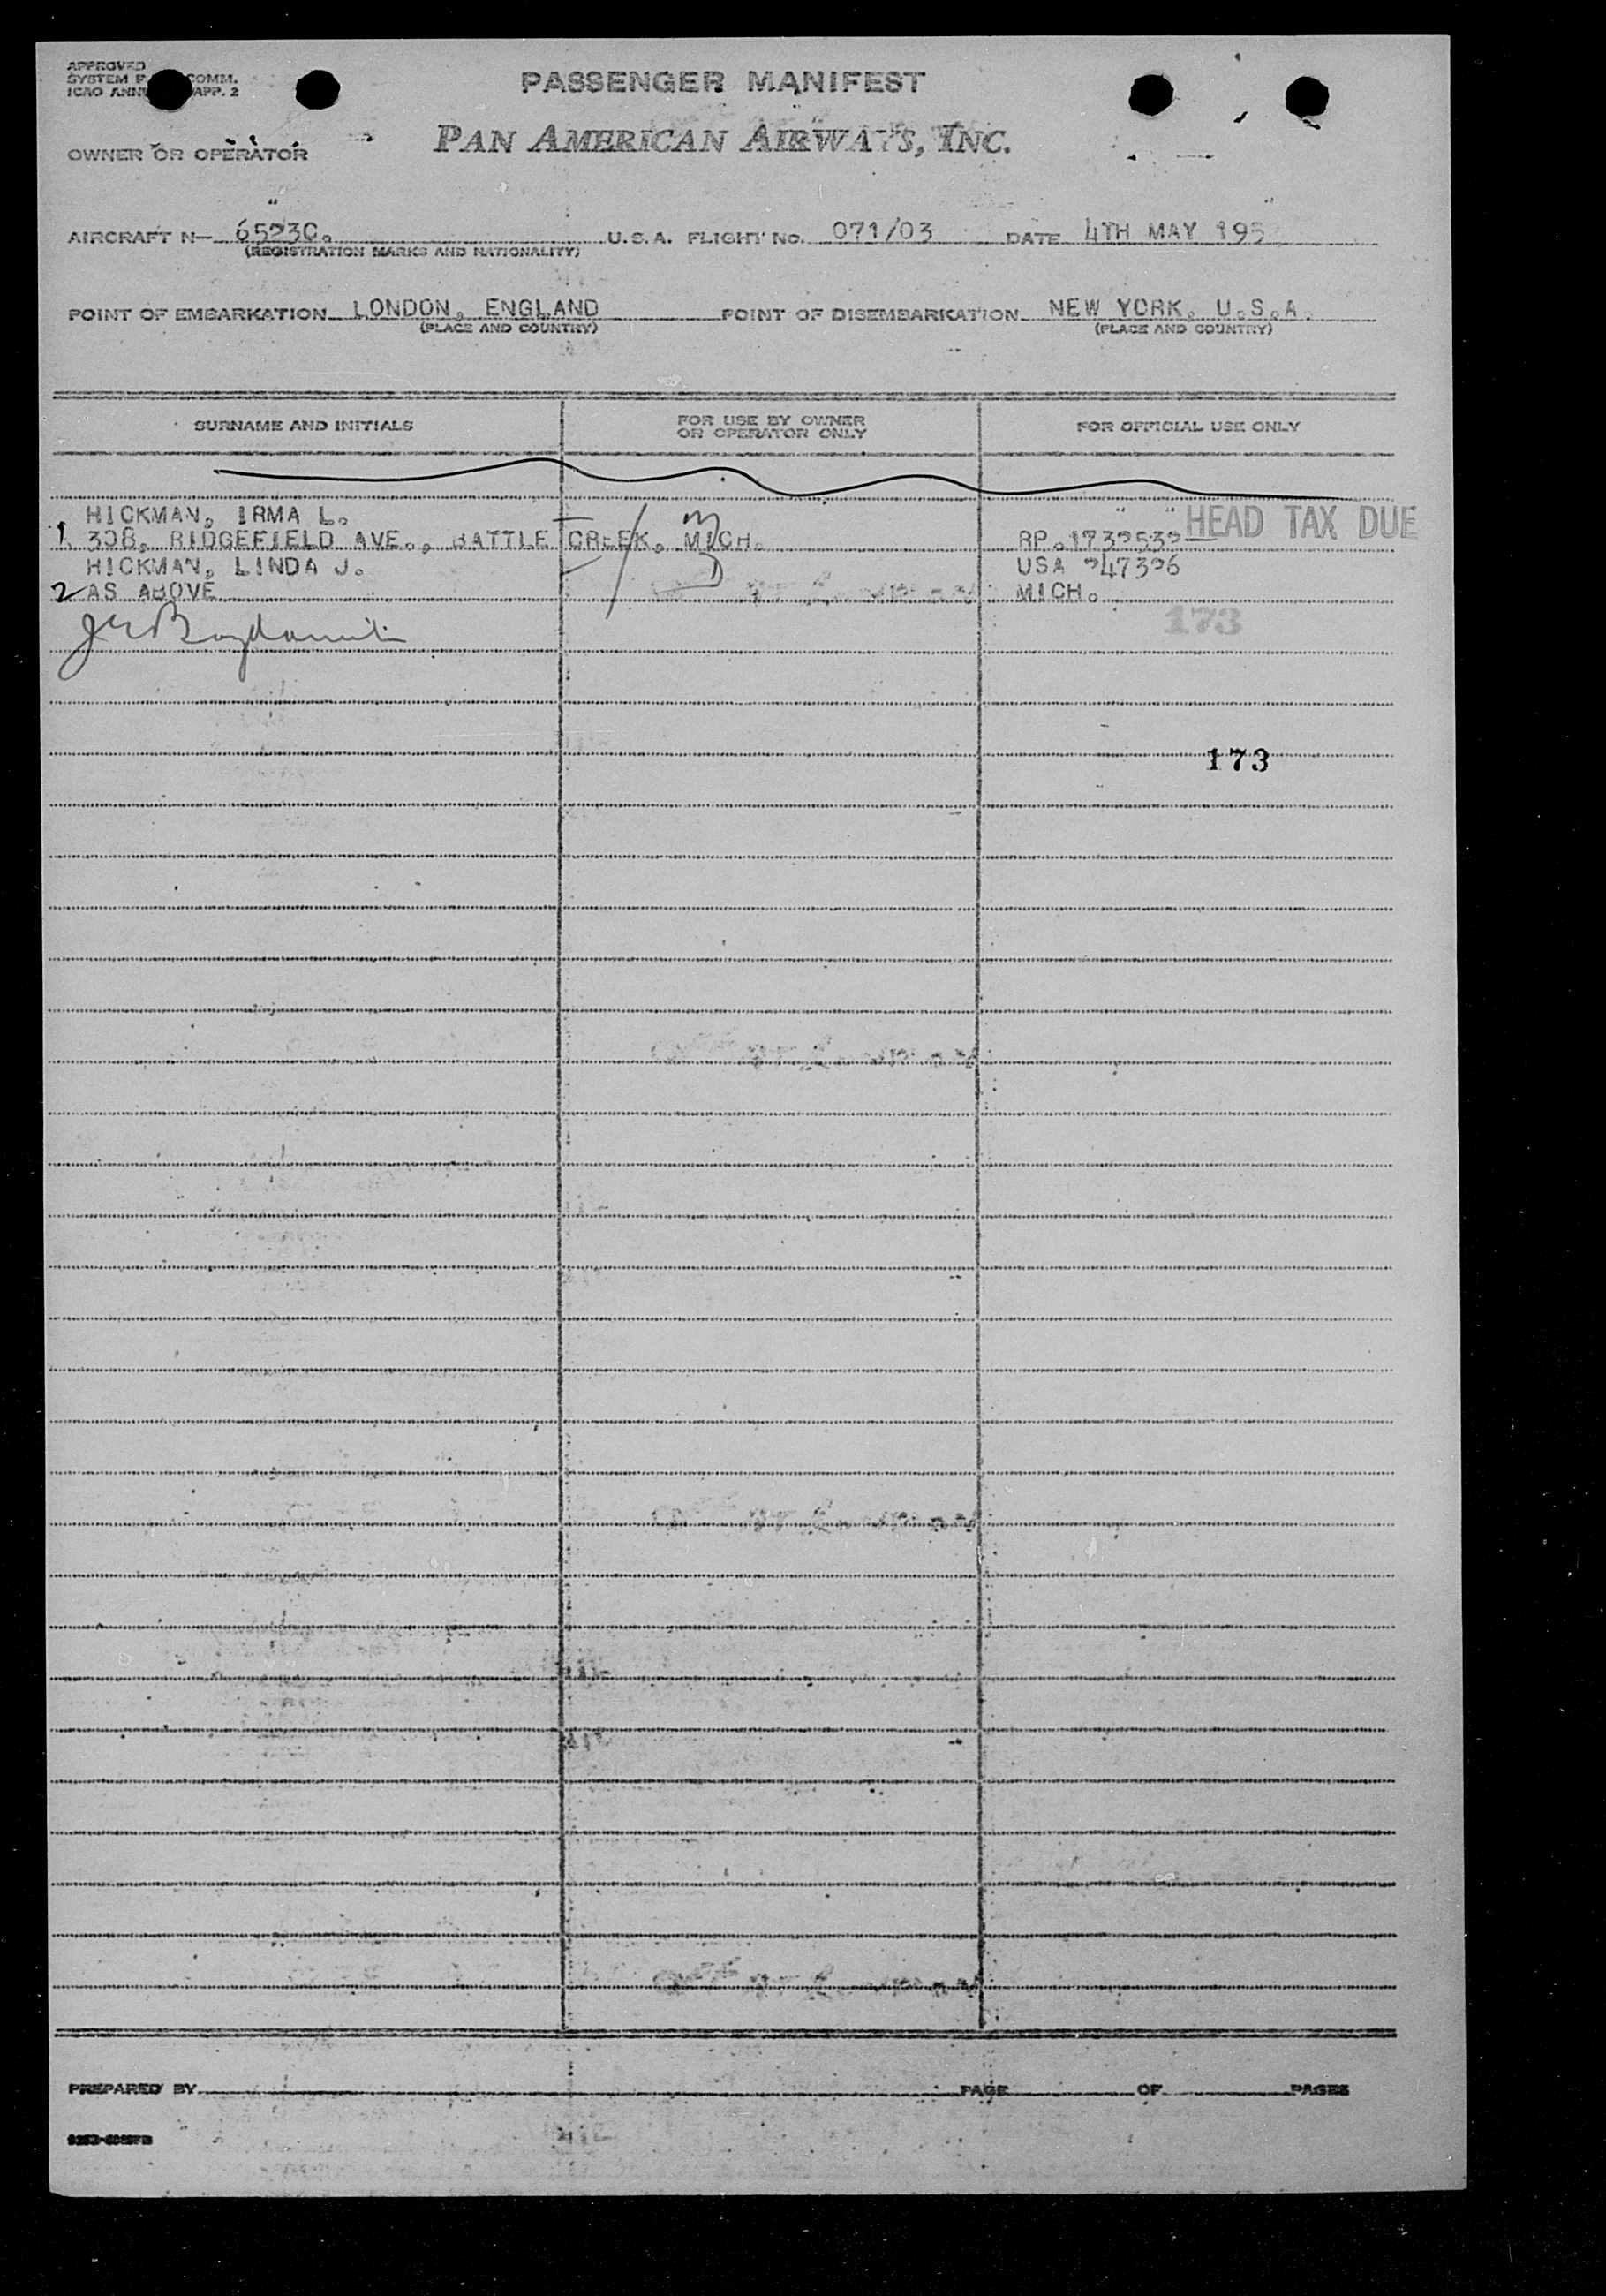 APPROVED
SYSTEM COMM.
ICAO APP. 2
PASSENGER MANIFEST
PAN AMERICAN AIRWAYS, INC.
OWNER OR OPERATOR
AIRCRAFT N— 6523C. U.S.A. FLIGHT NO. 071/03 DATE 4TH MAY 195
(REGISTRATION MARKS AND NATIONALITY)
POINT OF EMBARKATION LONDON, ENGLAND POINT OF DISEMBARKATION NEW YORK, U.S.A.
(PLACE AND COUNTRY) (PLACE AND COUNTRY)
SURNAME AND INITIALS FOR USE BY OWNER OR OPERATOR ONLY FOR OFFICIAL USE ONLY
HICKMAN, IRMA L. HEAD TAX DUE
1 308, RIDGEFIELD AVE., BATTLE CREEK, MICH. RP.1732532
HICKMAN, LINDA J. USA 247326
2 AS ABOVE MICH.
173
173
PREPARED BY PAGE OF PAGES